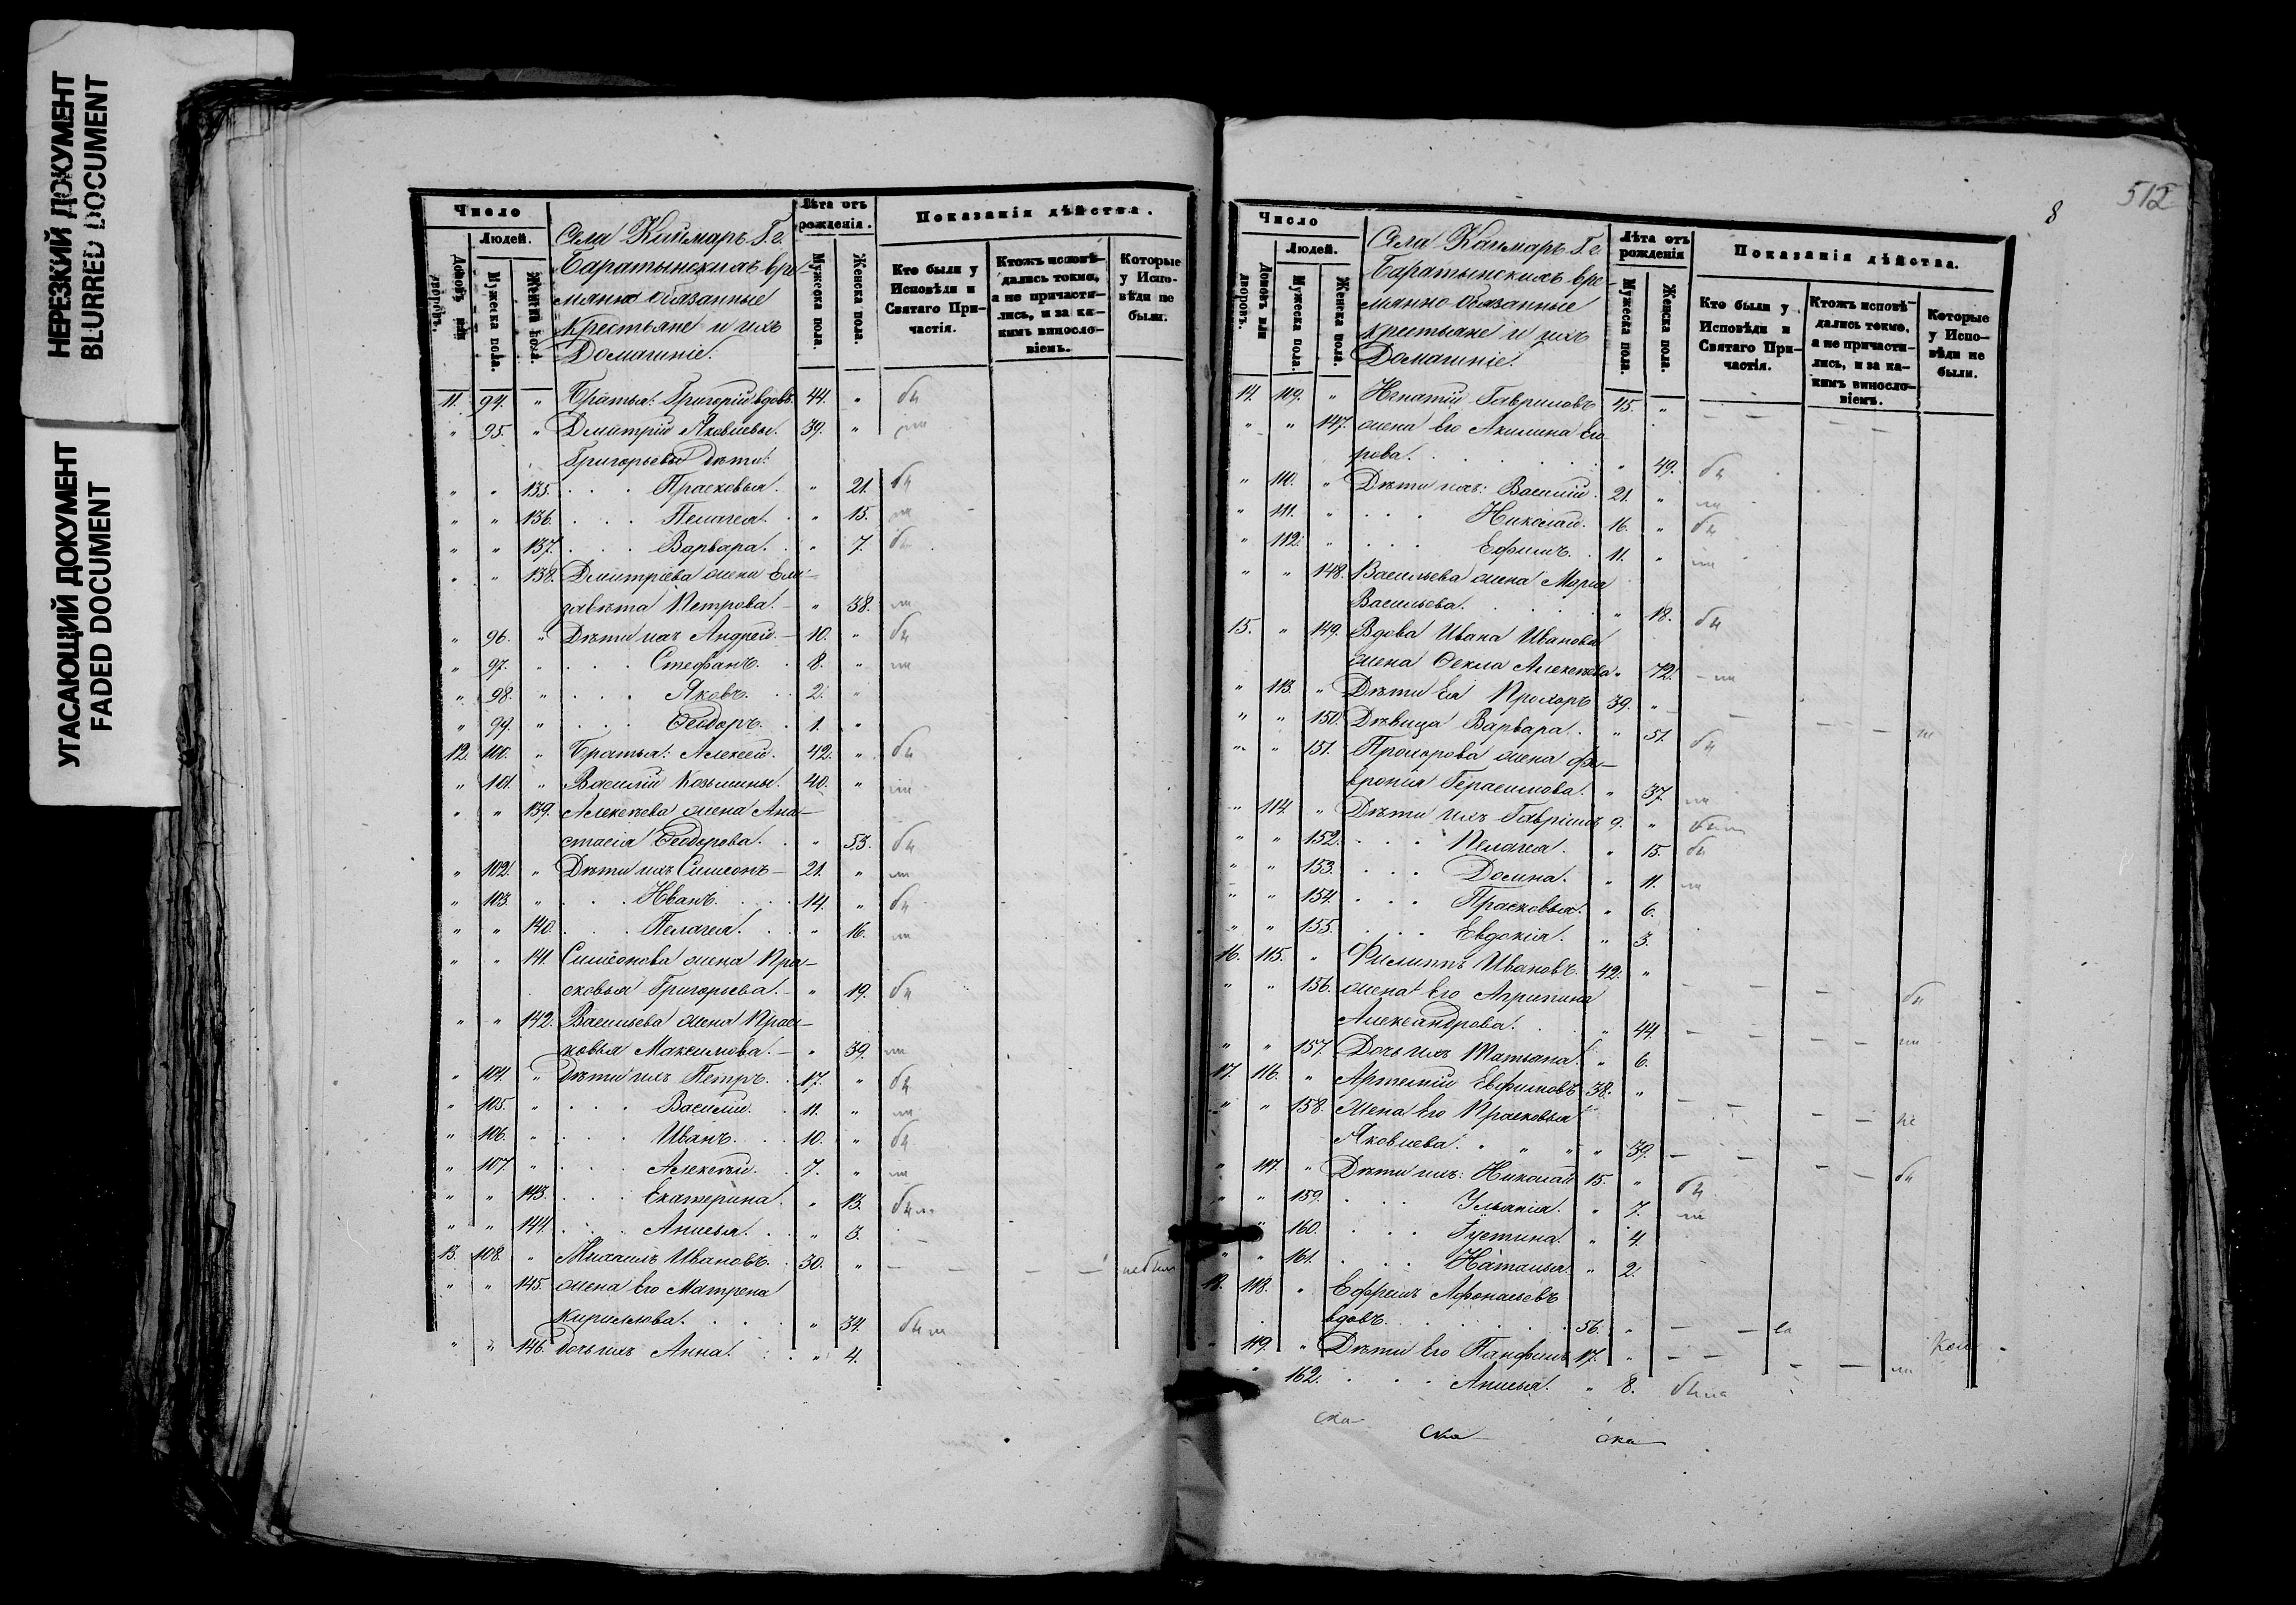 НЕРЕЗКИЙ ДОКУМЕНТ
BLURRED DOCUMENT
УГАСАЮЩИЙ ДОКУМЕНТ
FADED DOCUMENT
Число
Людей.
Домовъ или дворовъ.
Мужеска пола.
Женска пола.
Села Каймаръ Г. г.
Баратынскихъ вре-
мянно обязанные
крестьяне и ихъ
Домашніе.
Лѣта отъ рожденія.
Мужеска пола.
Женска пола.
Показанія дѣйства.
Кто были у Исповѣди и Святаго При-частія.
Ктожъ исповѣ-дались токмо, а не причасти-лись, и за ка-кимъ винosло-віемъ.
Которые у Испо-вѣди не были.
11. 94. " Братья: Григорій вдовъ. 44. " бы
" 95. " Дмитрій Яковлевы. 39. " ли
Григорьевы дѣти:
" " 135. Прасковья. " 21. бы
" " 136. Пелагея. " 15. ли
" " 137. Варвара. " 7. бы
" " 138. Дмитріева жена Ели-
завета Петрова. " 38. ли
" 96. " Дѣти ихъ Андрей. 10. " бы
" 97. " Стефанъ. 8. " ли
" 98. " Яковъ. 2. "
" 99. " Ѳеодоръ. 1. "
12. 100. " Братья: Алексей. 42. " бы
" 101. " Василій Козьмины. 40. " ли
" " 139. Алексѣева жена Ана-
стасія Ѳеодорова. " 53. бы
" 102. " Дѣти ихъ Симеонъ 21. " ли
" 103. " Иванъ. 14. " бы
" " 140. Пелагея. " 16. ли
" " 141. Симеонова жена Пра-
сковья Григорьева. " 19. бы
" " 142. Васильева жена Прас-
ковья Максимова. " 39. ли
" 104. " Дѣти ихъ Петръ. 17. " бы
" 105. " Василій. 11. " ли
" 106. " Иванъ. 10. " бы
" 107. " Алексѣй. 7. " ли
" " 143. Екатерина. " 13. были
" " 144. Анисья. " 3.
13. 108. " Михаилъ Ивановъ. 30. " не были
" " 145. жена его Матрена
Кириллова. " 34. были
" " 146. Дочь ихъ Анна. " 4.
512
8
Число
Людей.
Домовъ или дворовъ.
Мужеска пола.
Женска пола.
Села Каймаръ Г. г.
Баратынскихъ вре-
мянно обязанные
крестьяне и ихъ
Домашніе.
Лѣта отъ рожденія
Мужеска пола.
Женска пола.
Показанія дѣйства.
Кто были у Исповѣди и Святаго При-частія.
Ктожъ исповѣ-дались токмо, а не причасти-лись, и за ка-кимъ винosло-віемъ.
Которые у Испо-вѣди не были.
14. 109. " Игнатій Гавриловъ 45. "
" " 147. жена его Акилина Его-
рова. " 49. бы
" 110. " Дѣти ихъ: Василій. 21. " ли
" 111. " Николай. 16. " бы
" 112. " Ефимъ. 11. " ли
" " 148. Васильева жена Марья
Васильева. " 18. бы
15. " 149. Вдова Ивана Иванова
жена Ѳекла Алексѣева " 72. ли
" 113. " Дѣти ея Прохоръ 39. "
" " 150. Дѣвица Варвара. " 51. бы
" " 151. Прохорова жена Фе-
вронія Герасимова. " 37. ли
" 114. " Дѣти ихъ Гаврiилъ 9. " были
" " 152. Пелагея. " 15. бы
" " 153. Домна. " 11. ли
" " 154. Прасковья. " 6.
" " 155. Евдокія. " 3.
16. 115. " Филиппъ Ивановъ. 42. " бы
" " 156. жена его Агрипина
Александрова. " 44. ли
" " 157. Дочь ихъ Татьяна. " 6.
17. 116. " Артемій Евфимовъ 38. " не
" " 158. жена его Прасковья
Яковлева. " 39. бы
" 117. " Дѣти ихъ: Николай 15. " бы
" " 159. Ульянія. " 7. ли
" " 160. Густина. " 4.
" " 161. Наталья. " 2.
18. 118. " Ефремъ Афонасьевъ
вдовъ. 56. "
" 119. " Дѣти его Панфилъ 17. " ли
" " 162. Анисья. " 8. была